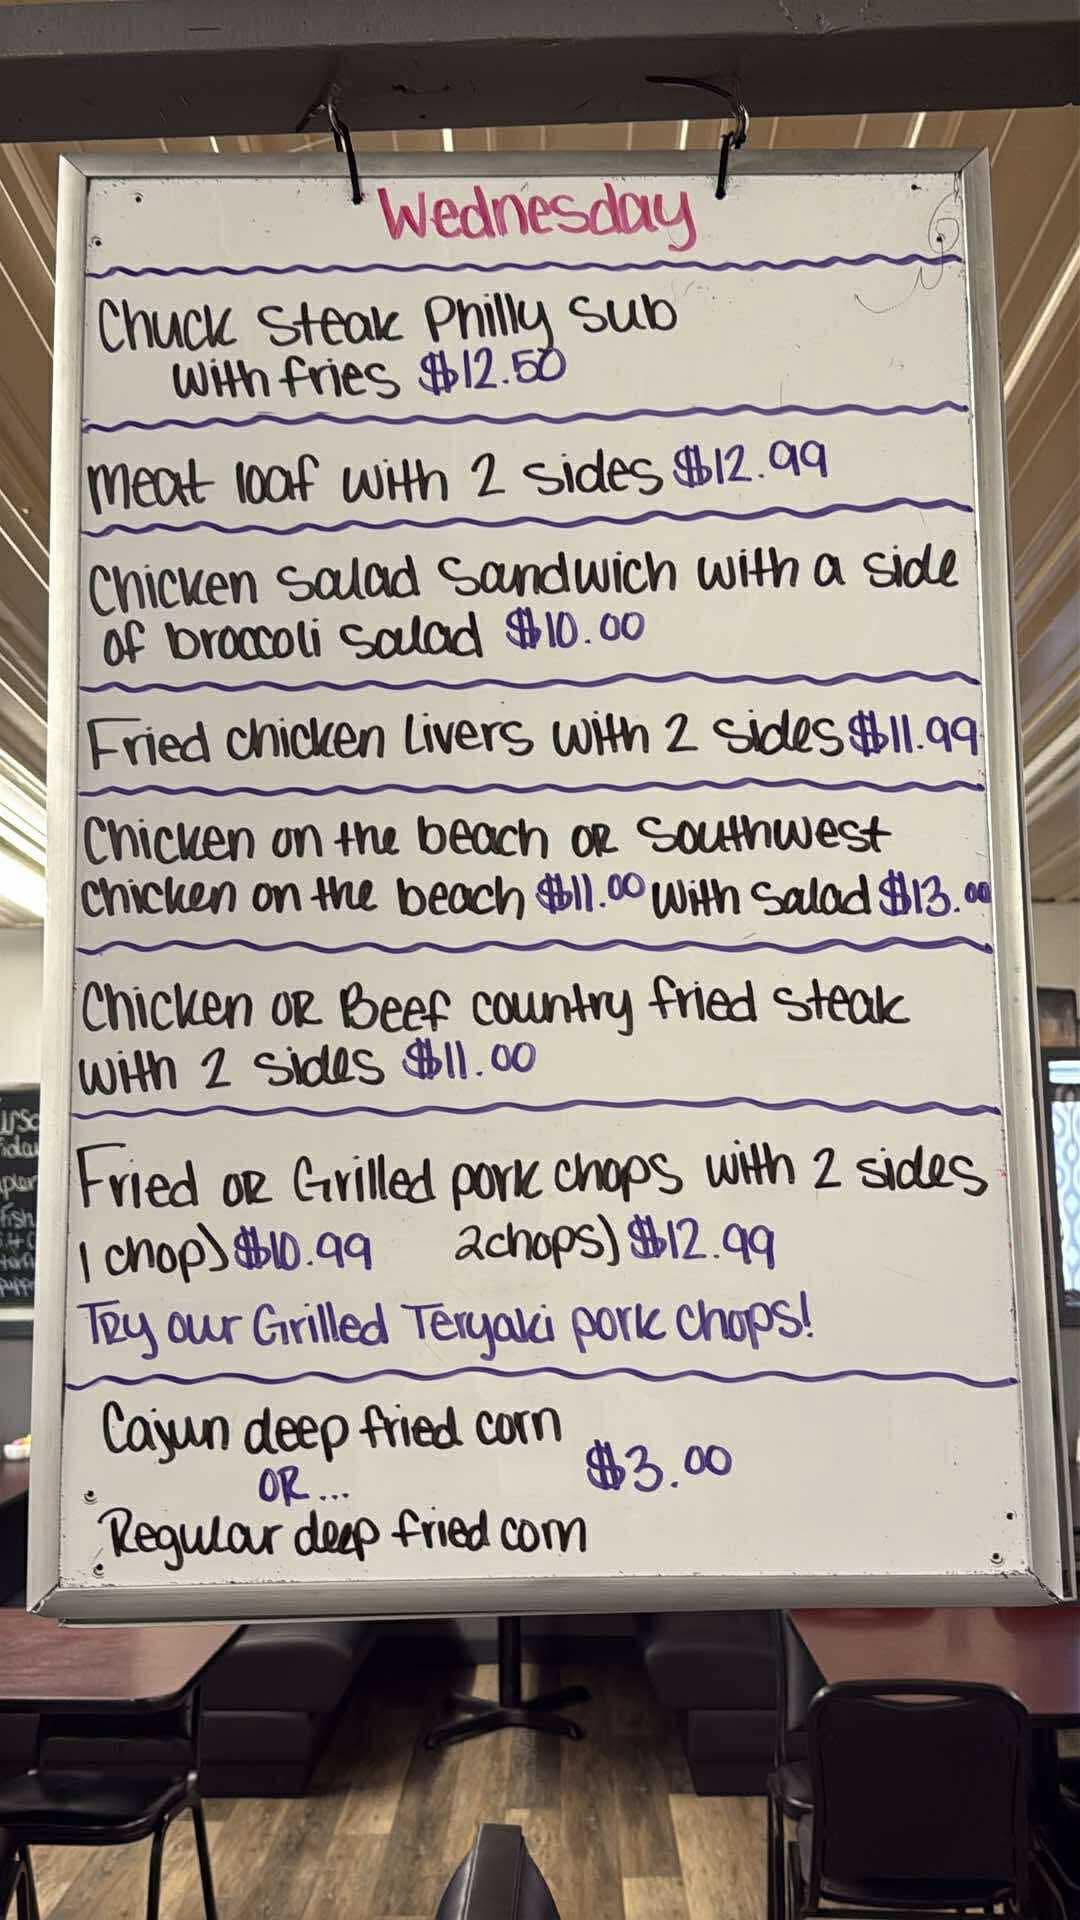 Wednesday
Chuck Steak Philly Sub
with fries $12.50
Meat loaf with 2 sides $12.99
Chicken Salad Sandwich with a side
of broccoli salad $10.00
Fried chicken Livers with 2 sides $11.99
Chicken on the beach OR Southwest
chicken on the beach $11.00 with salad $13.00
Chicken OR Beef country fried steak
with 2 sides $11.00
Fried OR Grilled pork chops with 2 sides
1 chop) $10.99 2chops) $12.99
Try our Grilled Teryaki pork chops!
Cajun deep fried corn
OR... $3.00
Regular deep fried corn